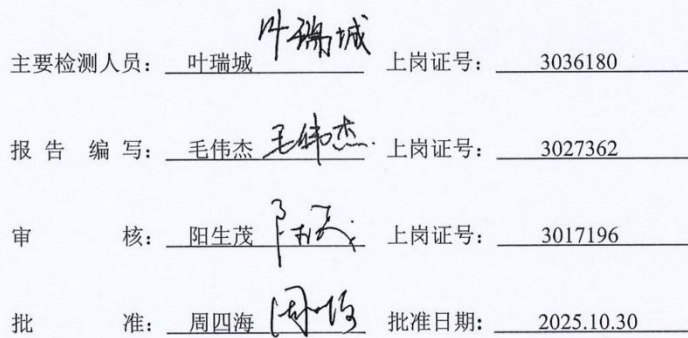 叶瑞城
主要检测人员： 叶瑞城 上岗证号： 3036180
报 告 编 写： 毛伟杰 毛伟杰 上岗证号： 3027362
审 核： 阳生茂 上岗证号： 3017196
批 准： 周四海 批准日期： 2025.10.30